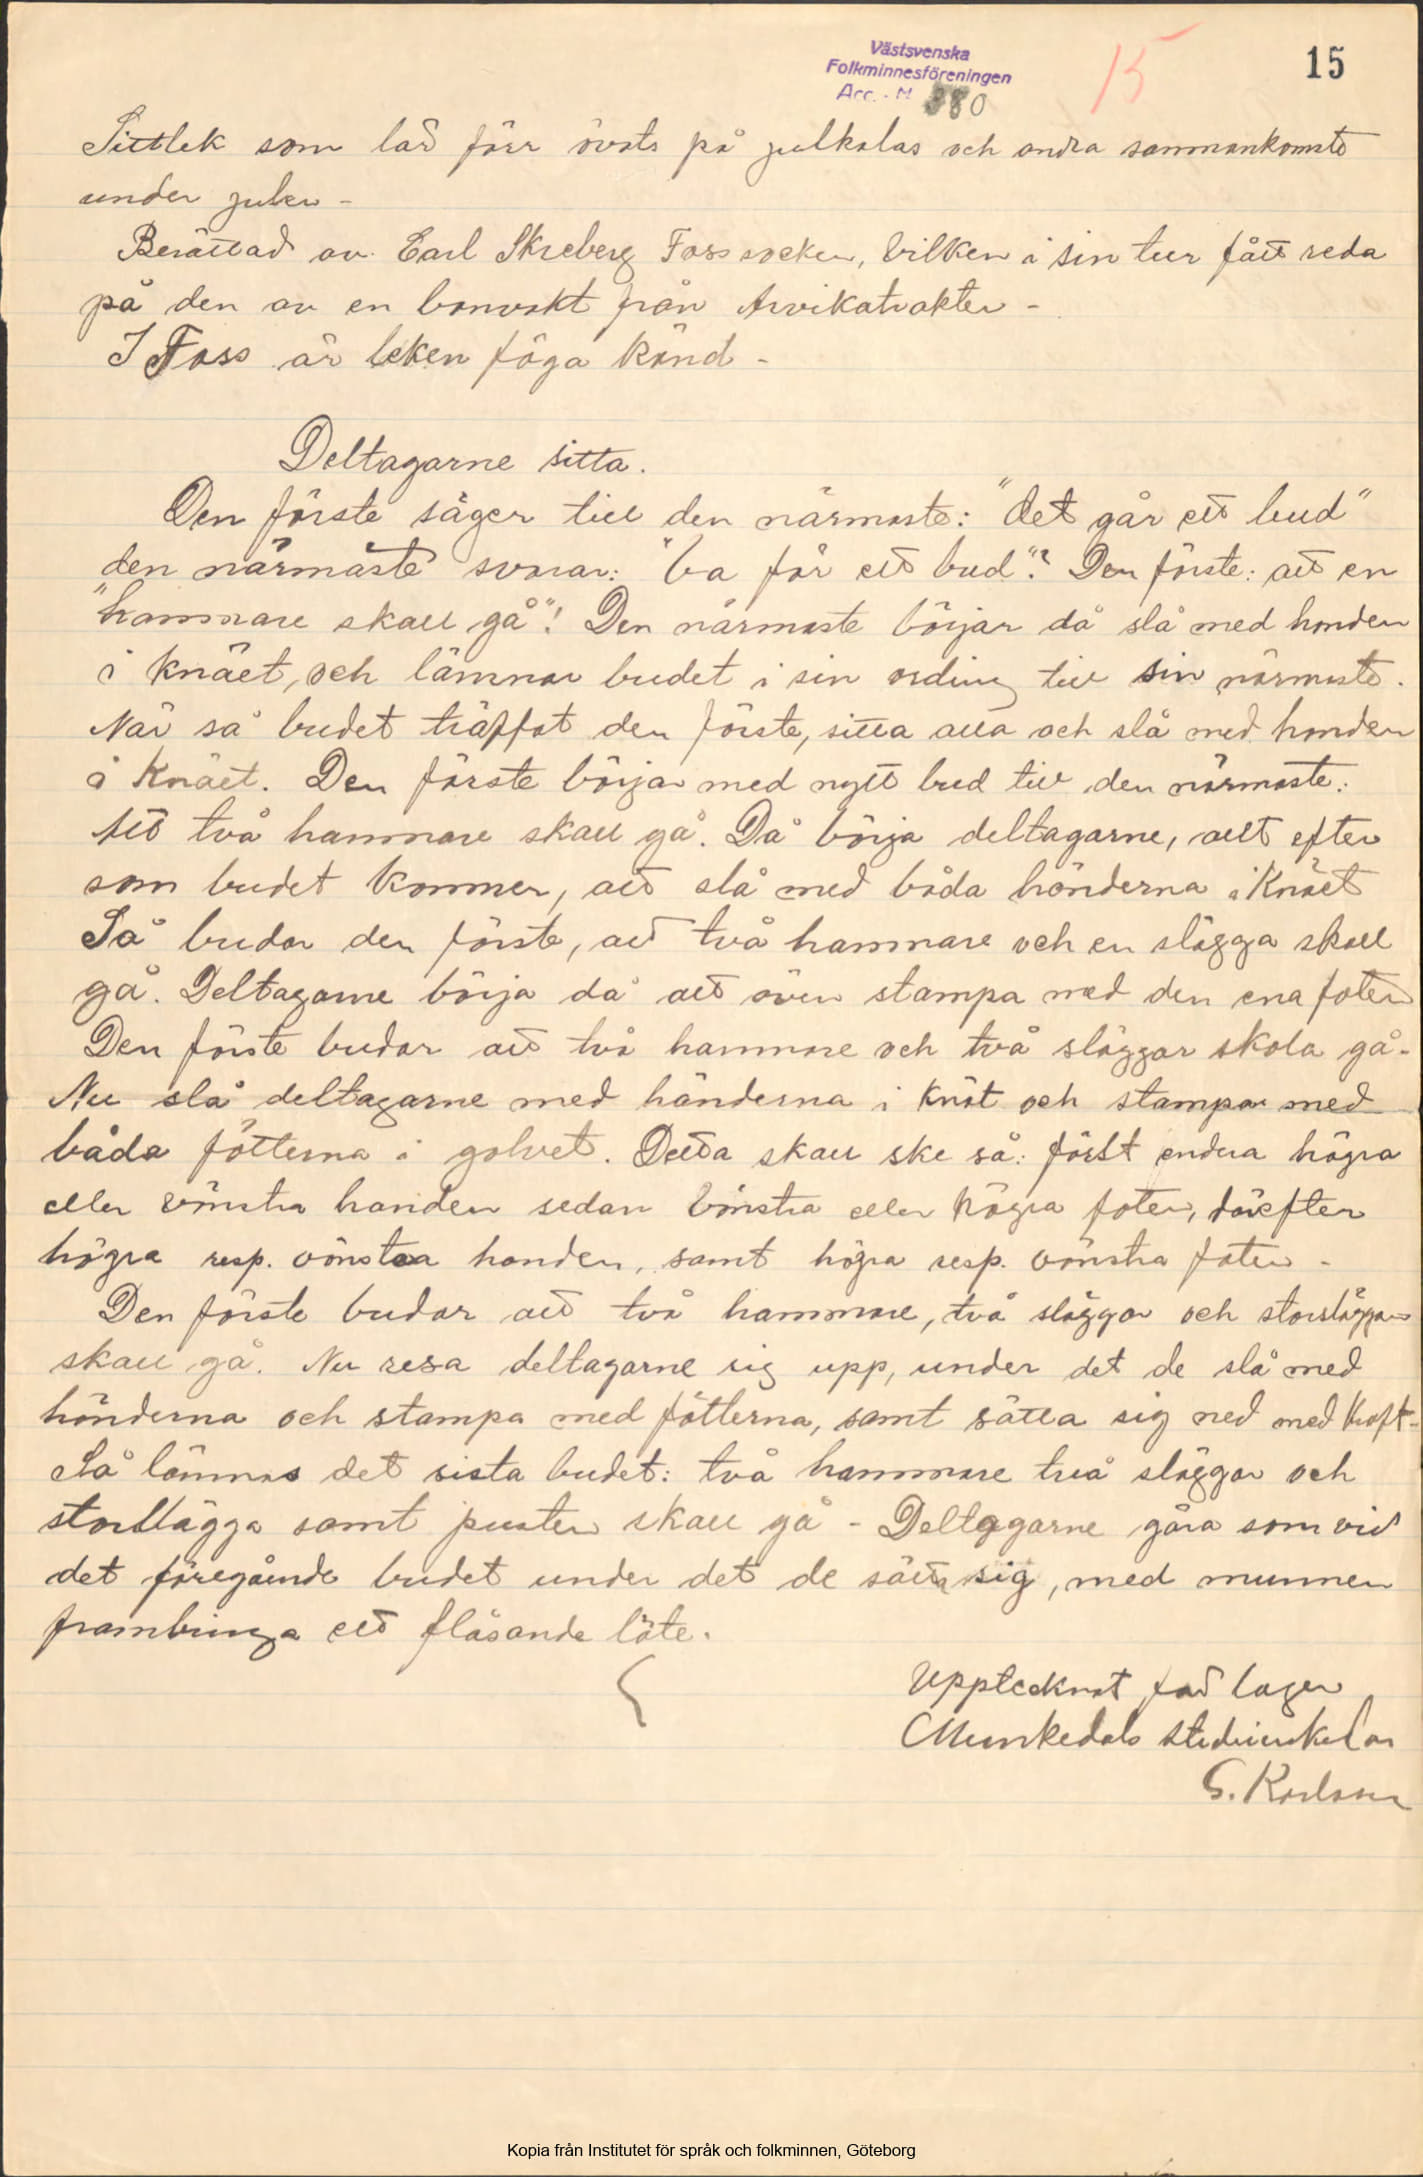 Västsvenska
Folkminnesföreningen
Acc. - N 380
15
15
Sittlek som lär förr övats på julkalas och andra sammankomste
under julen -
Berättad av Carl Skreberg Foss socken, vilken i sin tur fått reda
på den av en banvakt från Arvikatrakten -
I Foss är leken föga känd -
Deltagarne sitta.
Den förste säger till den närmaste: "det går ett bud"
den närmaste svarar: "va för ett bud"? Den förste: att en
"hammare skall gå"! Den närmaste börjar då slå med handen
i knäet, och lämnar budet i sin ordning till sin närmaste.
När så budet träffat den förste, sitta alla och slå med handen
i knäet. Den förste börjar med nytt bud till den närmaste:
Att två hammare skall gå. Då börja deltagarne, allt efter
som budet kommer, att slå med båda händerna i knäet
Så budar den förste, att två hammare och en slägga skall
gå. Deltagarne börja då att även stampa med den ena foten
Den förste budar att två hammare och två släggor skola gå -
Nu slå deltagarne med händerna i knät och stampar med
båda fötterna i golvet. Detta skall ske så: först endera högra
eller vänstra handen sedan vänstra eller högra foten, därefter
högra resp. vänstra handen, samt högra resp. vänstra foten -
Den förste budar att två hammare, två släggor och storsläggan
skall gå. Nu resa deltagarne sig upp, under det de slå med
händerna och stampa med fötterna, samt sätta sig ned med kraft -
Så lämnas det sista budet: två hammare två släggor och
storslägga samt pusten skall gå - Deltagarne göra som vid
det föregående budet under det de sätta sig, med munnen
frambringa ett flåsande läte.
Upptecknat av
Munkedals studiecirkel av
G. Karlsson
Kopia från Institutet för språk och folkminnen, Göteborg